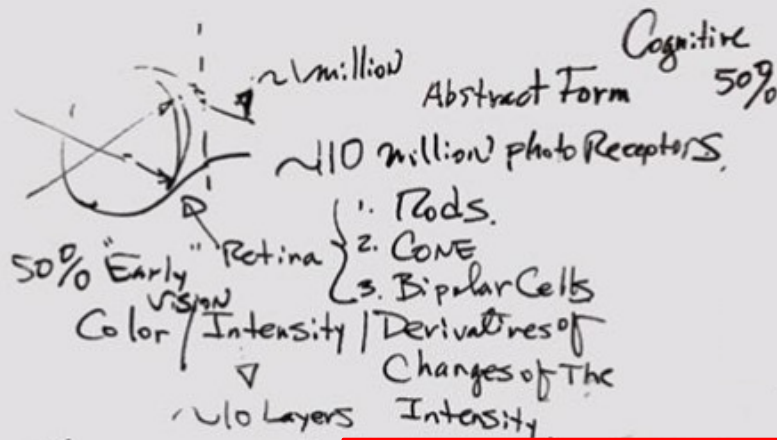 Cognitive
50%
~1 million
Abstract Form
~110 million photo Receptors.
1. Rods.
Retina { 2. CONE
3. Bipolar Cells
50% "Early" Vision
Color / Intensity / Derivatives of
Changes of The
Intensity
~10 Layers